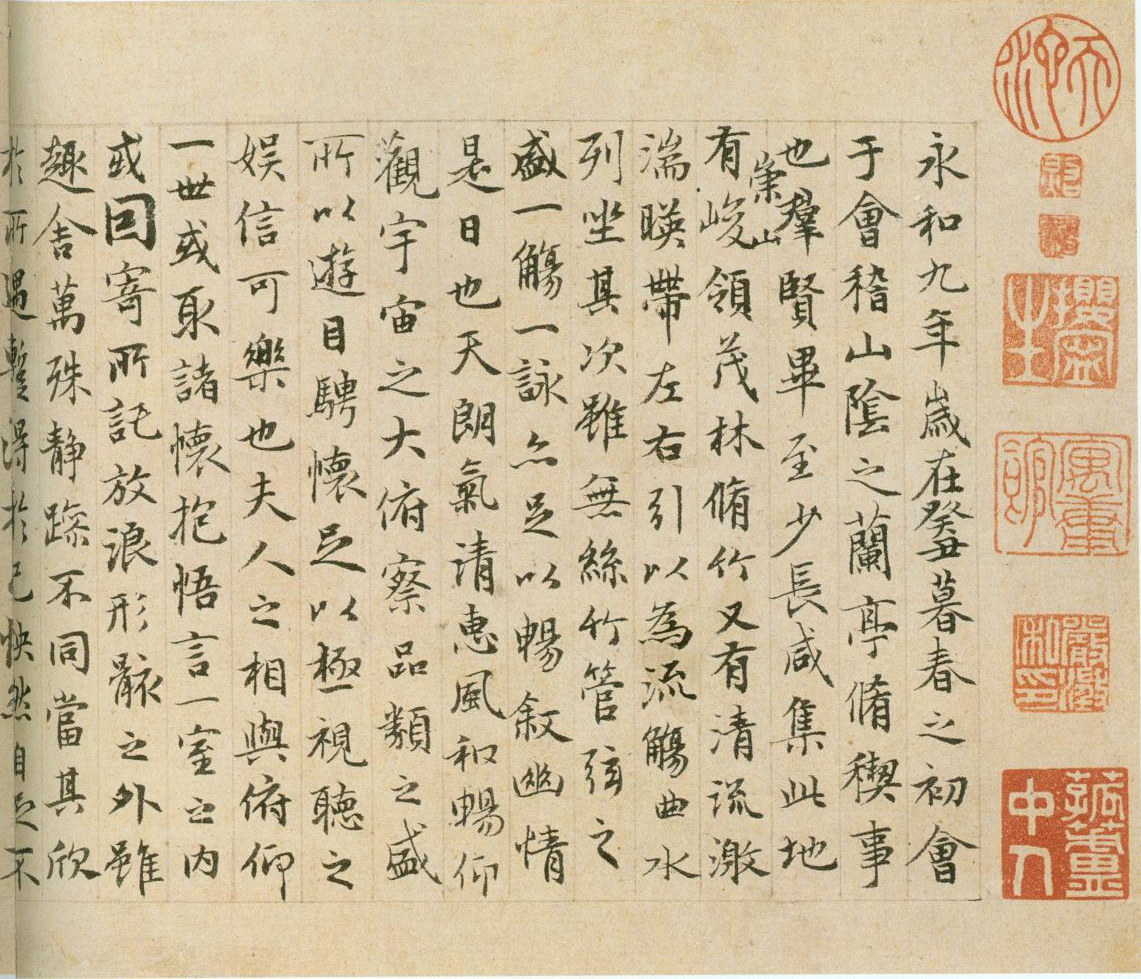 永和九年歲在癸丑暮春之初會
于會稽山陰之蘭亭脩稧事
也羣賢畢至少長咸集此地
有崇山峻領茂林脩竹又有清流激
湍暎帶左右引以為流觴曲水
列坐其次雖無絲竹管弦之
盛一觴一詠亦足以暢敘幽情
是日也天朗氣清惠風和暢仰
觀宇宙之大俯察品類之盛
所以遊目騁懷足以極視聽之
娛信可樂也夫人之相與俯仰
一世或取諸懷抱悟言一室之內
或因寄所託放浪形骸之外雖
趣舍萬殊靜躁不同當其欣
於所遇蹔得於己怏然自足不
嚴澂私印